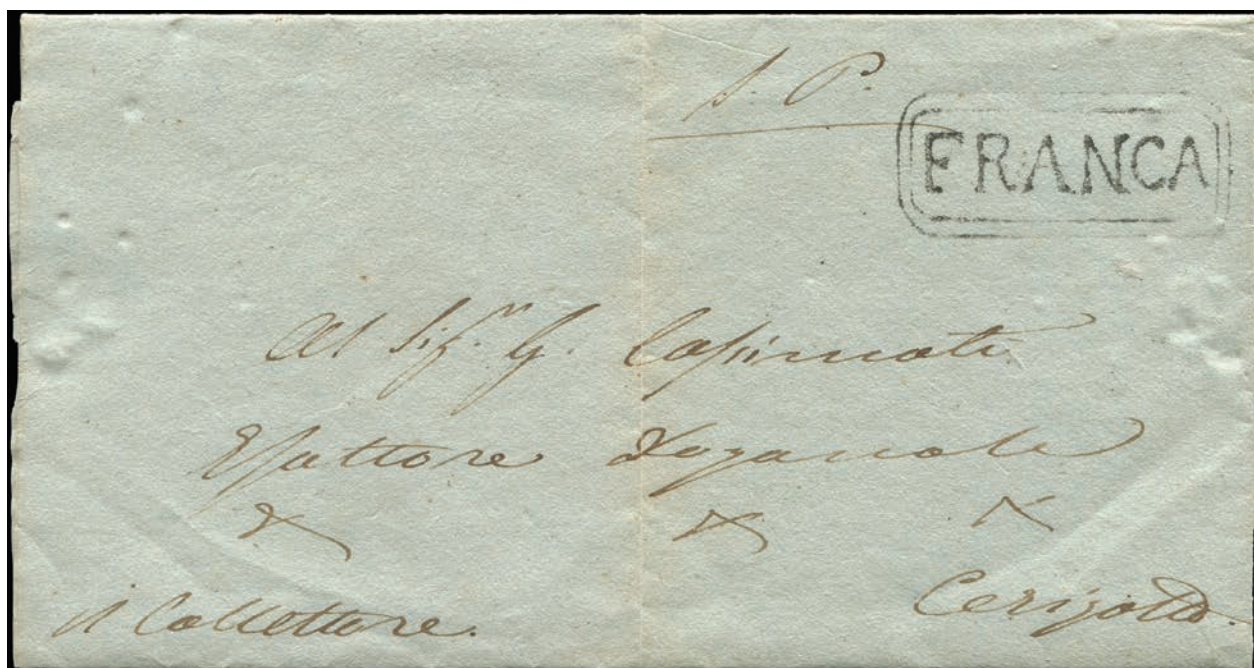 S. P.
FRANCA
Al Sig.r G. Casimati
Esattore Doganale
& & &
Il Collettore.
Cerigotto.